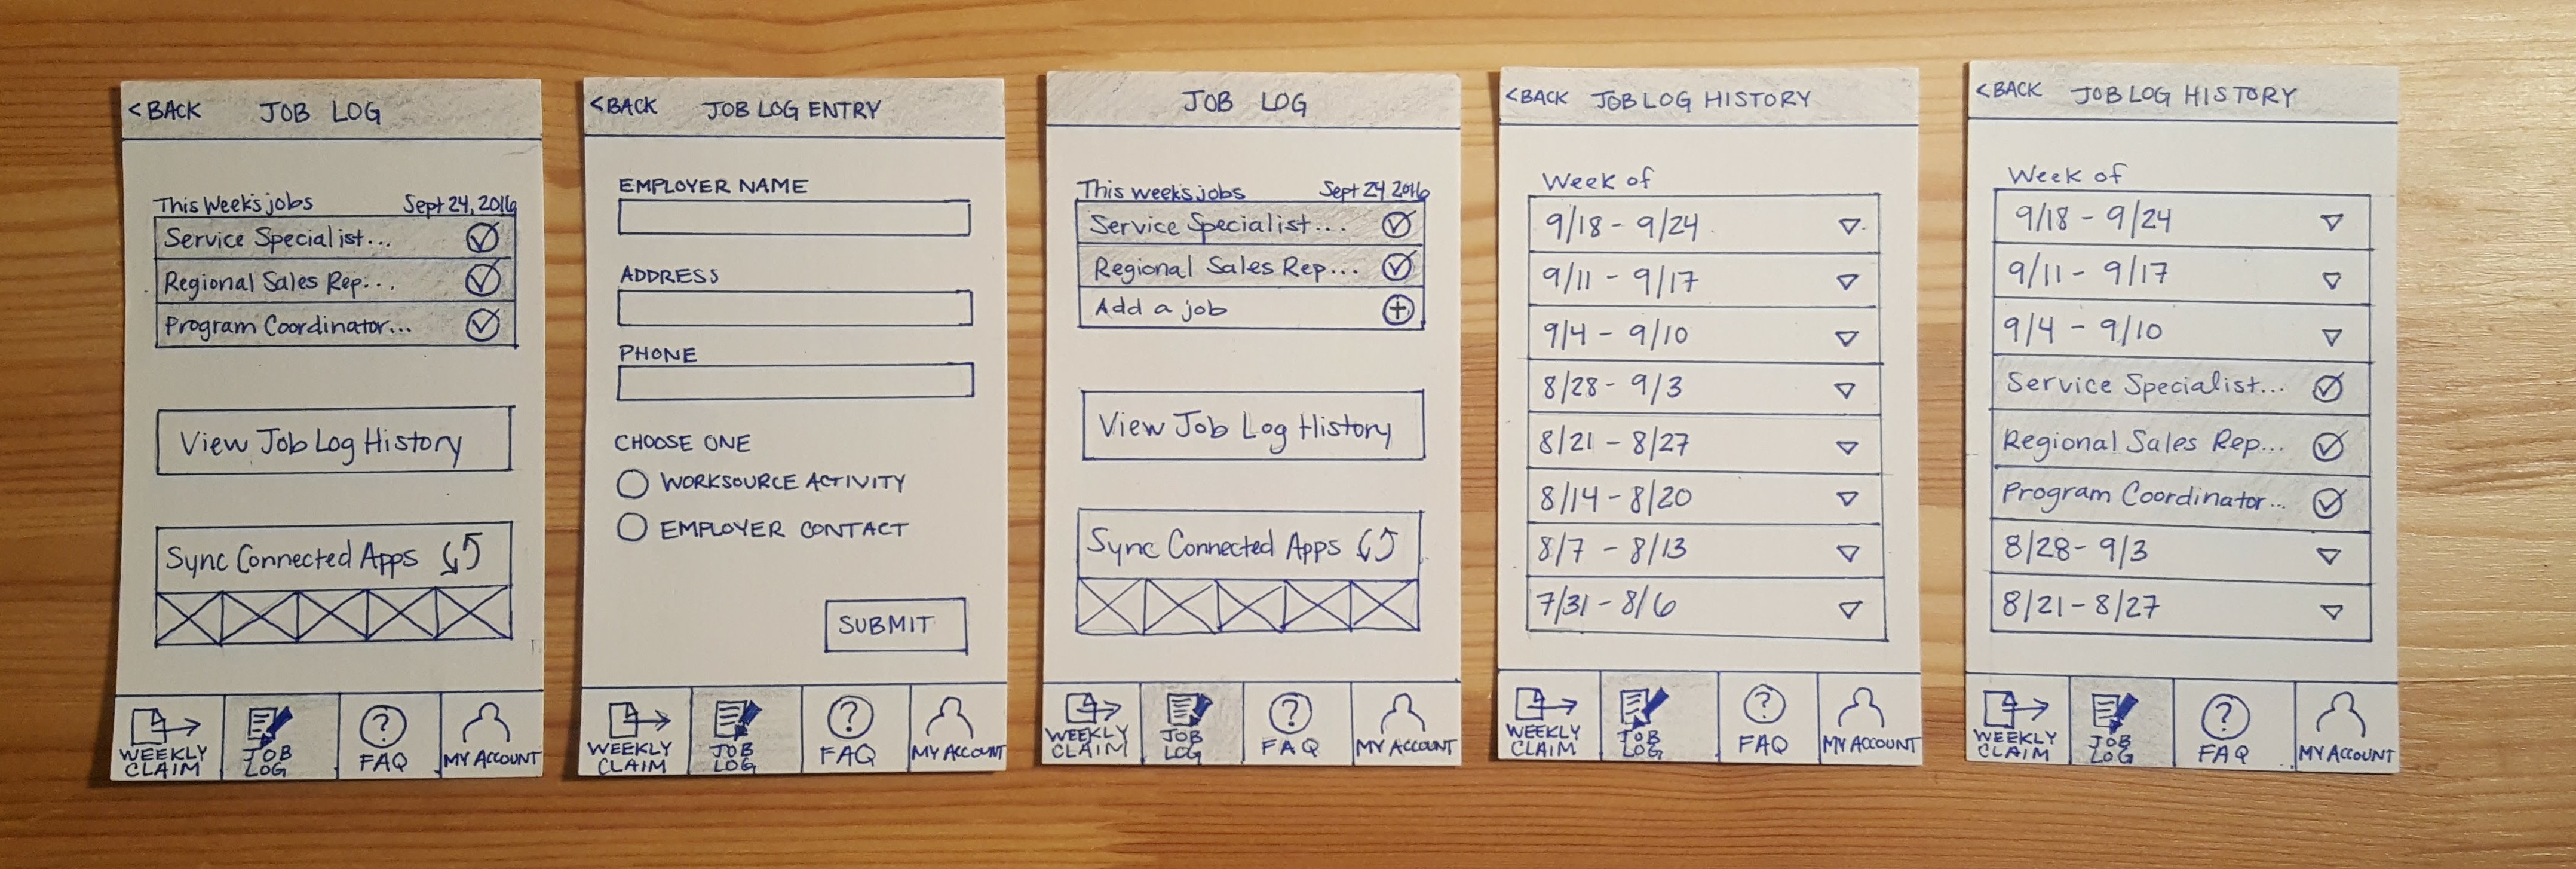 < BACK JOB LOG
This Week's jobs Sept 24, 2016
Service Specialist...
Regional Sales Rep...
Program Coordinator...
View Job Log History
Sync Connected Apps
WEEKLY CLAIM
JOB LOG
FAQ
MY ACCOUNT
< BACK JOB LOG ENTRY
EMPLOYER NAME
ADDRESS
PHONE
CHOOSE ONE
WORKSOURCE ACTIVITY
EMPLOYER CONTACT
SUBMIT
WEEKLY CLAIM
JOB LOG
FAQ
MY ACCOUNT
JOB LOG
This weeks jobs Sept 24 2016
Service Specialist...
Regional Sales Rep...
Add a job
View Job Log History
Sync Connected Apps
WEEKLY CLAIM
JOB LOG
FAQ
MY ACCOUNT
< BACK JOB LOG HISTORY
Week of
9/18 - 9/24
9/11 - 9/17
9/4 - 9/10
8/28 - 9/3
8/21 - 8/27
8/14 - 8/20
8/7 - 8/13
7/31 - 8/6
WEEKLY CLAIM
JOB LOG
FAQ
MY ACCOUNT
< BACK JOB LOG HISTORY
Week of
9/18 - 9/24
9/11 - 9/17
9/4 - 9/10
Service Specialist...
Regional Sales Rep...
Program Coordinator...
8/28 - 9/3
8/21 - 8/27
WEEKLY CLAIM
JOB LOG
FAQ
MY ACCOUNT